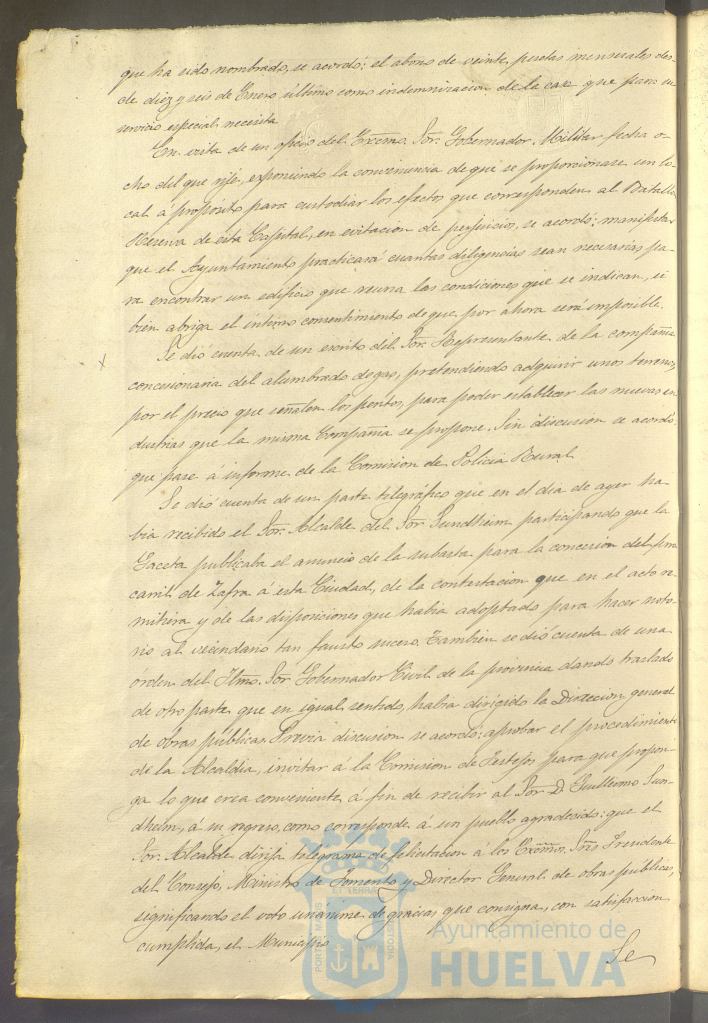 que ha sido nombrado, se acordó: el abono de veinte pesetas mensuales des-
de diez y seis de Enero último como indemnizacion de la casa que para su
servicio especial necesita
En vista de un oficio del Excmo. Sor. Gobernador Militar, fecha o-
cho del que rije, exponiendo la conveniencia de que se proporcionase un lo-
cal á propósito para custodiar los efectos que corresponden al Batallon
Reserva de esta Capital, en evitacion de perjuicios, se acordó: manifestar
que el Ayuntamiento practicará cuantas diligencias sean necesarias pa-
ra encontrar un edificio que reuna las condiciones que se indican, si
bien abriga el íntimo convencimiento de que por ahora será imposible.
Se dió cuenta de un escrito del Sor. Representante de la compañia
concesionaria del alumbrado de gas, pretendiendo adquirir unos terrenos
por el precio que señalen los peritos, para poder establecer las nuevas in-
dustrias que la misma Compañia se propone. Sin discusion se acordó
que pase á informe de la Comision de Policia Rural.
Se dió cuenta de un parte telegráfico que en el dia de ayer ha-
bia recibido el Sor. Alcalde del Sor Sundheim participando que la
Gaceta publicaba el anuncio de la subasta para la concesion del ferro
carril de Zafra á esta Ciudad, de la contestacion que en el acto re-
mitiera y de las disposiciones que habia adoptado para hacer noto-
rio al vecindario tan fausto suceso. Tambien se dió cuenta de una
órden del Iltmo. Sor Gobernador Civil de la provincia dando traslado
de otro parte que en igual sentido, habia dirigido la Direccion general
de obras públicas. Previa discusion se acordó: aprobar el procedimiento
de la Alcaldia, invitar á la Comision de Festejos para que propon-
ga lo que crea conveniente á fin de recibir al Sor. D. Guillermo Sun-
dheim, á su regreso, como corresponde á un pueblo agradecido: que el
Sor. Alcalde dirija telegrama de felicitacion á los Excmos. Sres Presidente
del Consejo, Ministro de Fomento y Director General de obras públicas,
significando el voto unánime de gracias que consigna, con satisfaccion
cumplida, el Municipio
Se
Ayuntamiento de
HUELVA